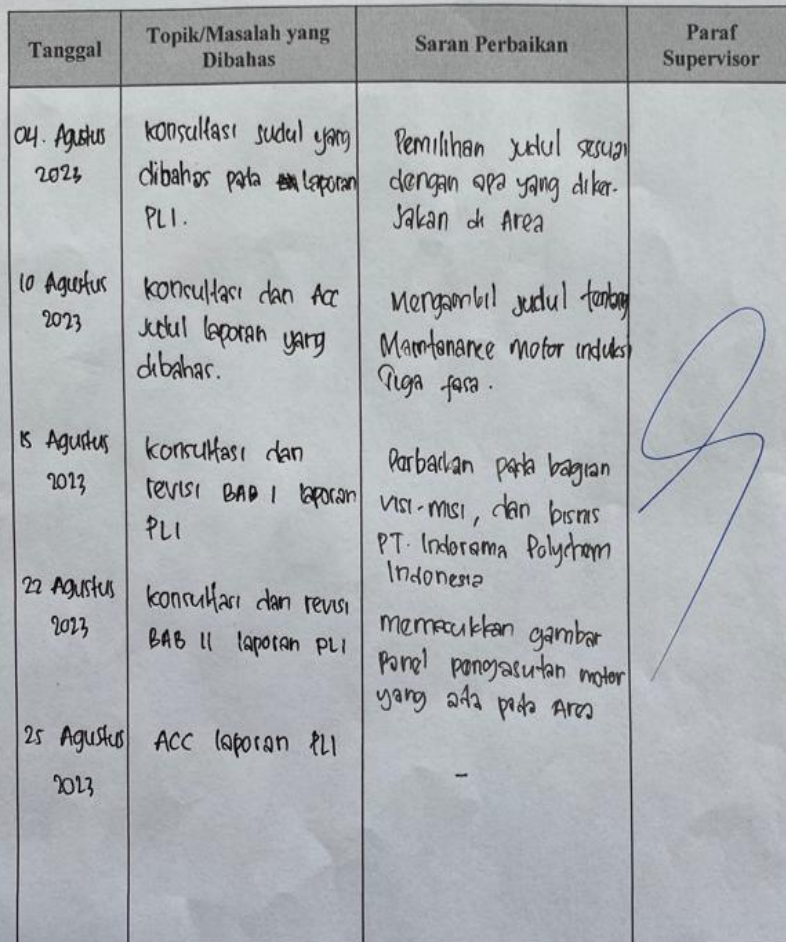 Tanggal
Topik/Masalah yang
Dibahas
Saran Perbaikan
Paraf
Supervisor
04. Agustus
2023
konsultasi judul yang
dibahas pada laporan
PLI.
Pemilihan judul sesuai
dengan apa yang diker-
jakan di Area
10 Agustus
2023
konsultasi dan Acc
judul laporan yang
dibahas.
Mengambil judul tentang
Maintanance motor induksi
Tiga fasa.
15 Agustus
2023
konsultasi dan
revisi BAB I laporan
PLI
Perbaikan pada bagian
visi-misi, dan bisnis
PT. Indorama Polychem
Indonesia
22 Agustus
2023
konsultasi dan revisi
BAB II laporan PLI
memasukkan gambar
Panel pengasutan motor
yang ada pada Area
25 Agustus
2023
ACC laporan PLI
-